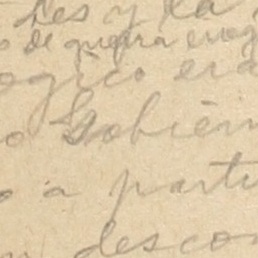 les y la
de guerra erog
ogico era
o Gobiern
o a parti
descon